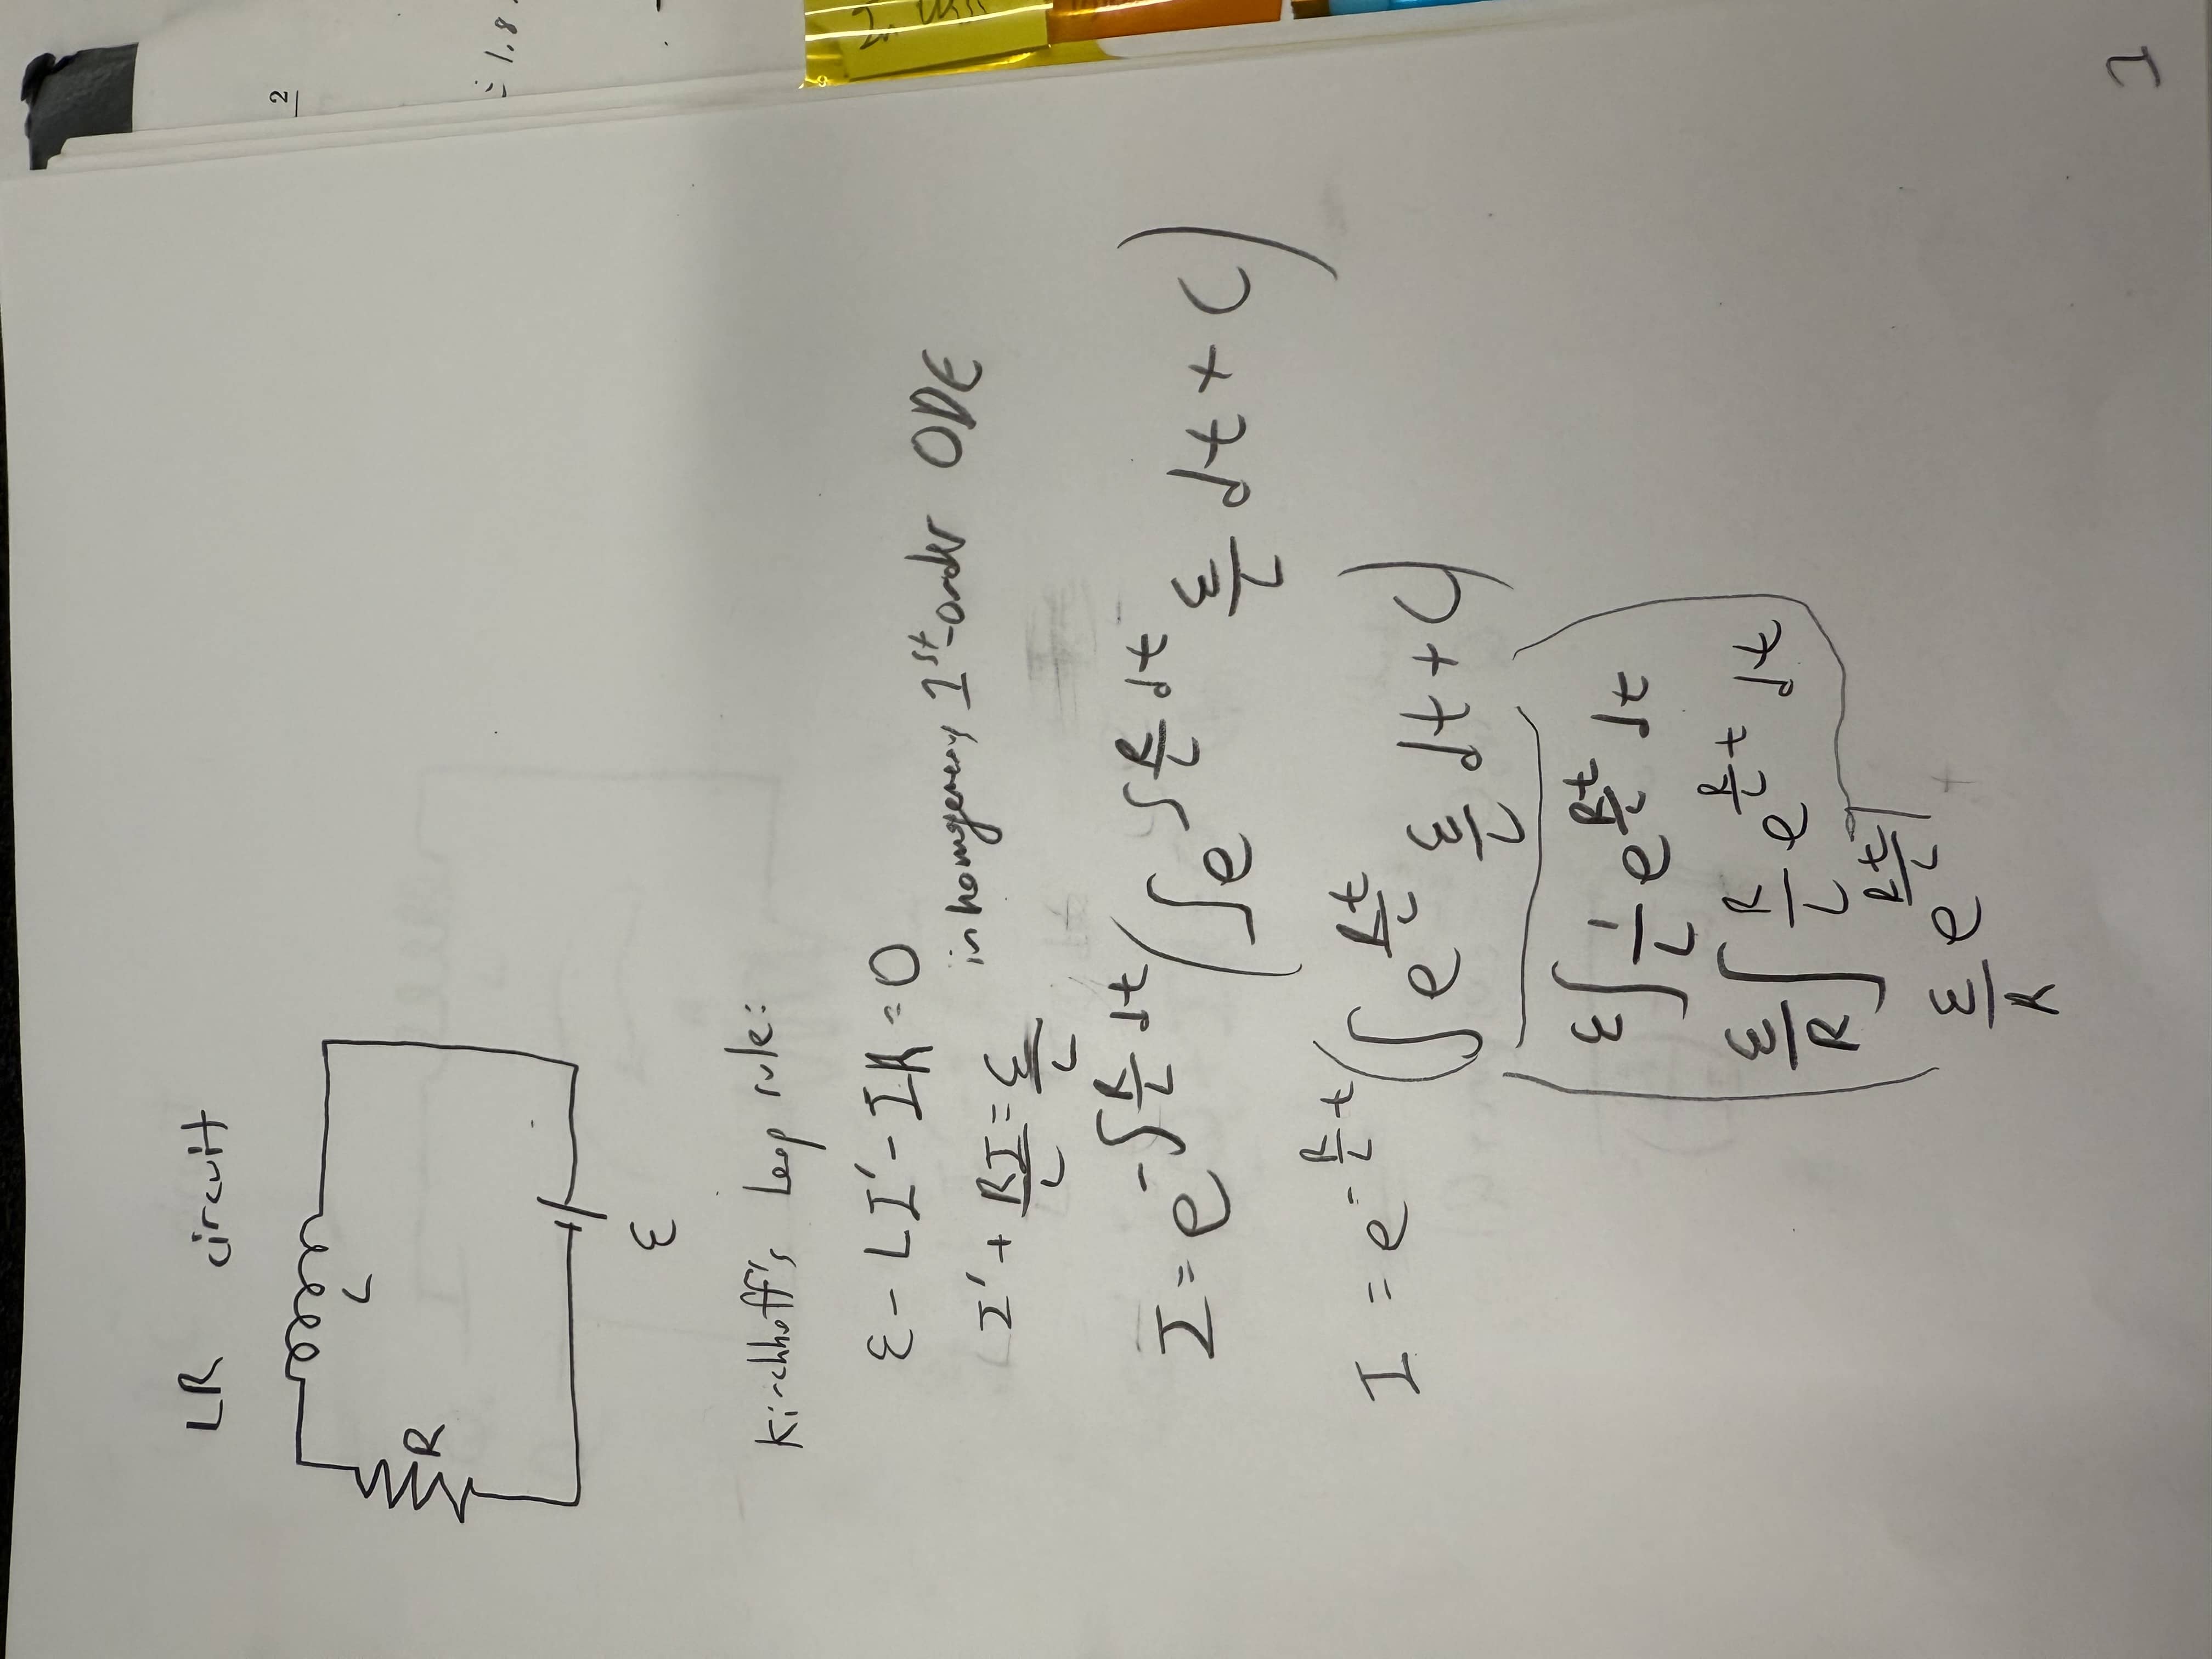 LR circuit
L
R
ε
Kirchhoff's Loop rule:
ε - LI' - IR = 0
I' + RI/L = ε/L inhomogeneous 1st-order ODE
I = e^{-∫ R/L dt} (∫ e^{∫ R/L dt} ε/L dt + C)
I = e^{-R/L t} (∫ e^{R/L t} ε/L dt + C)
ε ∫ 1/L e^{R/L t} dt
ε/R ∫ R/L e^{R/L t} dt
ε/R e^{R/L t}
1
2
= 1.8